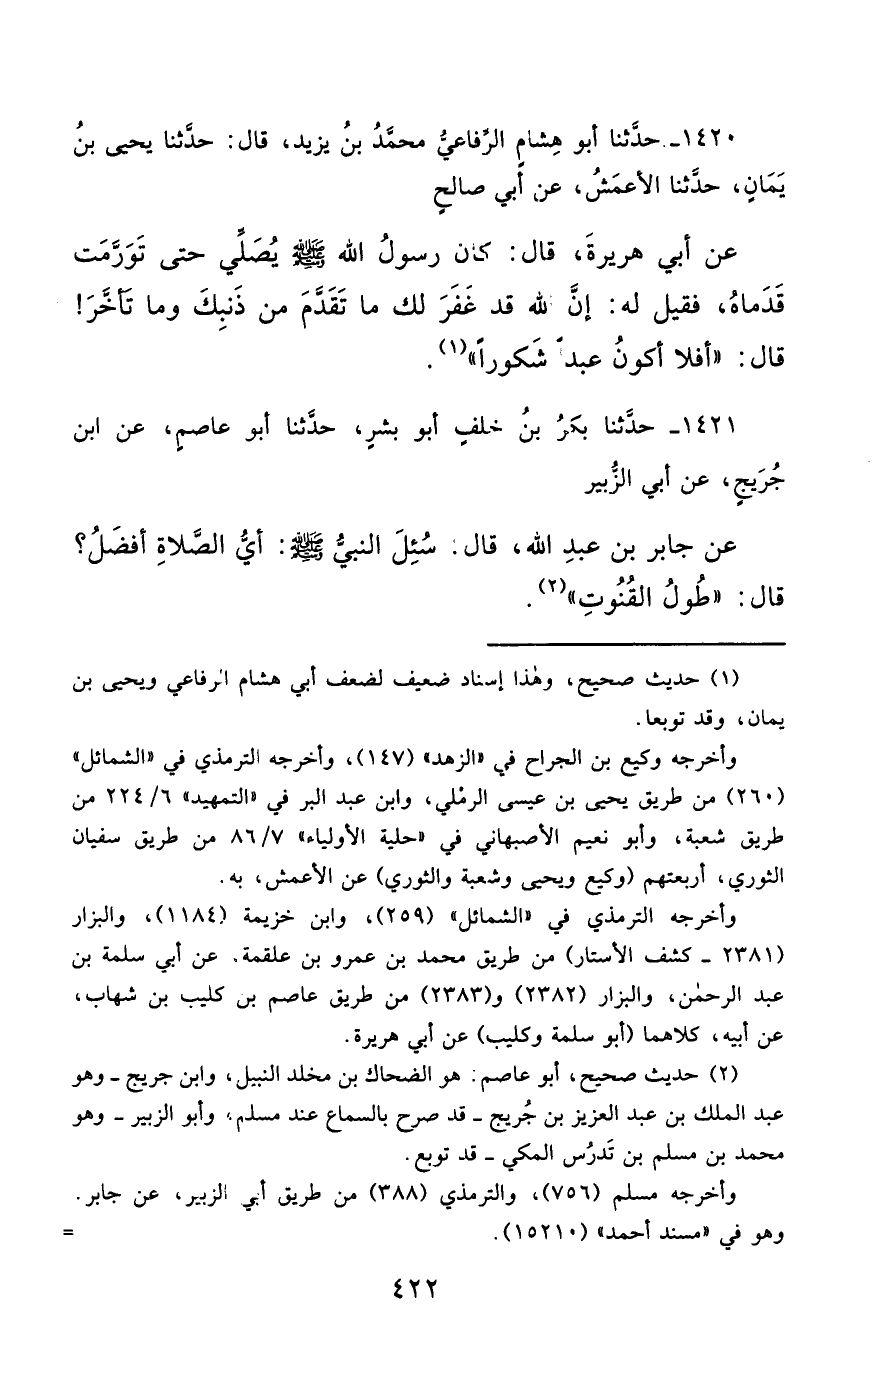 ١٤٢٠ـ حدَّثنا أبو هِشامٍ الرِّفاعيُّ محمَّدُ بنُ يزيد، قال: حدَّثنا يحيى بنُ
يَمَانٍ، حدَّثنا الأعمَشُ، عن أبي صالحٍ
عن أبي هريرةَ، قال: كان رسولُ الله ﷺ يُصَلِّي حتى تَوَرَّمَت
قَدَماهُ، فقيل له: إنَّ الله قد غَفَرَ لك ما تَقَدَّمَ من ذَنبِكَ وما تَأخَّرَ!
قال: «أفلا أكونُ عبداً شَكوراً»(١).
١٤٢١ـ حدَّثنا بكرُ بنُ خلفٍ أبو بشرٍ، حدَّثنا أبو عاصمٍ، عن ابن
جُرَيجٍ، عن أبي الزُّبير
عن جابر بن عبدِ الله، قال: سُئِلَ النبيُّ ﷺ: أيُّ الصَّلاةِ أفضَلُ؟
قال: «طُولُ القُنُوتِ»(٢).
(١) حديث صحيح، وهٰذا إسناد ضعيف لضعف أبي هشام الرفاعي ويحيى بن
يمان، وقد توبعا.
وأخرجه وكيع بن الجراح في «الزهد» (١٤٧)، وأخرجه الترمذي في «الشمائل»
(٢٦٠) من طريق يحيى بن عيسى الرمْلي، وابن عبد البر في «التمهيد» ٢٢٤/٦ من
طريق شعبة، وأبو نعيم الأصبهاني في «حلية الأولياء» ٨٦/٧ من طريق سفيان
الثوري، أربعتهم (وكيع ويحيى وشعبة والثوري) عن الأعمش، به.
وأخرجه الترمذي في «الشمائل» (٢٥٩)، وابن خزيمة (١١٨٤)، والبزار
(٢٣٨١ ـ كشف الأستار) من طريق محمد بن عمرو بن علقمة، عن أبي سلمة بن
عبد الرحمٰن، والبزار (٢٣٨٢) و(٢٣٨٣) من طريق عاصم بن كليب بن شهاب،
عن أبيه، كلاهما (أبو سلمة وكليب) عن أبي هريرة.
(٢) حديث صحيح، أبو عاصم: هو الضحاك بن مخلد النبيل، وابن جريج ـ وهو
عبد الملك بن عبد العزيز بن جُريج ـ قد صرح بالسماع عند مسلم، وأبو الزبير ـ وهو
محمد بن مسلم بن تَدرُس المكي ـ قد توبع.
وأخرجه مسلم (٧٥٦)، والترمذي (٣٨٨) من طريق أبي الزبير، عن جابر.
وهو في «مسند أحمد» (١٥٢١٠). =
٤٢٢